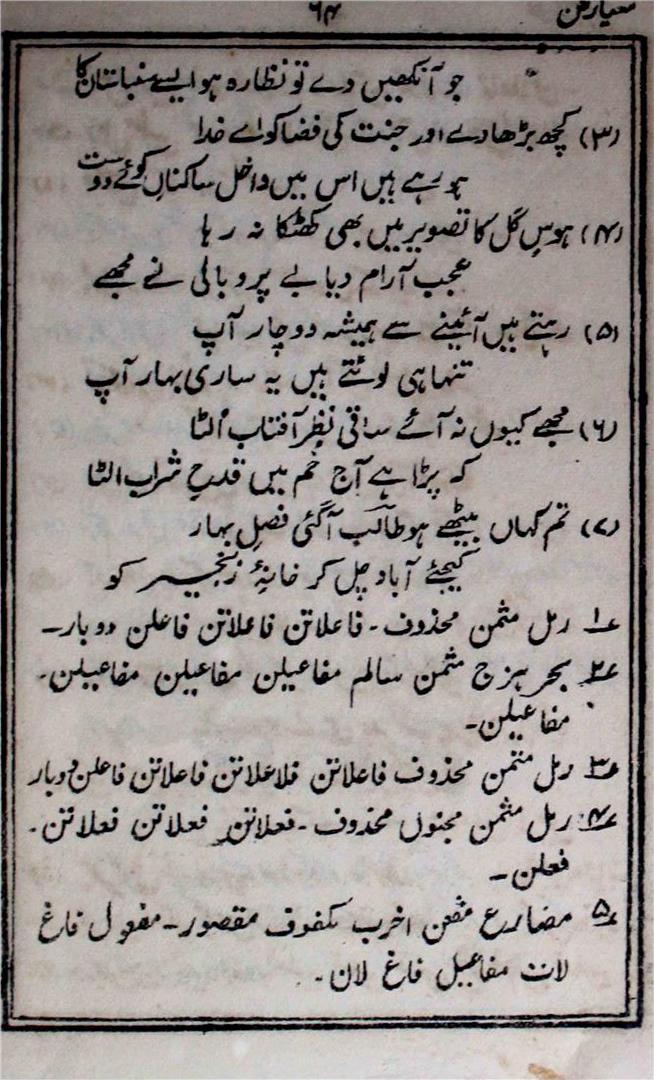 معیار فن ۶۴
جو آنکھیں دے تو نظارہ ہو ایسے سنبلستان کا
(۳) کچھ بڑھا دے اور جنت کی فضا کو اے خدا
ہو رہے ہیں اس میں داخل ساکنانِ کوئے دوست
(۴) ہوسِ گل کا تصویر میں بھی کھٹکا نہ رہا
عجب آرام دیا بے پر و بالی نے مجھے
(۵) رہتے ہیں آئینے سے ہمیشہ دو چار آپ
تنہا ہی لوٹتے ہیں یہ ساری بہار آپ
(۶) مجھے کیوں نہ آئے ساقی نظر آفتاب اُلٹا
کہ پڑا ہے آج خم میں قدحِ شراب الٹا
(۷) تم کہاں بیٹھے ہو طالب آگئی فصلِ بہار
کیجئے آباد چل کر خانۂ زنجیر کو
۱؎ رمل مثمن محذوف۔ فاعلاتن فاعلاتن فاعلن دوبار۔
۲؎ بحر ہزج مثمن سالم مفاعیلن مفاعیلن مفاعیلن۔
مفاعیلن۔
۳؎ رمل مثمن محذوف فاعلاتن فلاعلاتن فاعلاتن فاعلن دوبار
۴؎ رمل مثمن مجنوں محذوف۔ فعلاتن فعلاتن فعلاتن۔
فعلن۔
۵؎ مضارع مثمن اخرب مکفوف مقصور۔ مفعول فاغ
لات مفاعیل فاغ لان۔